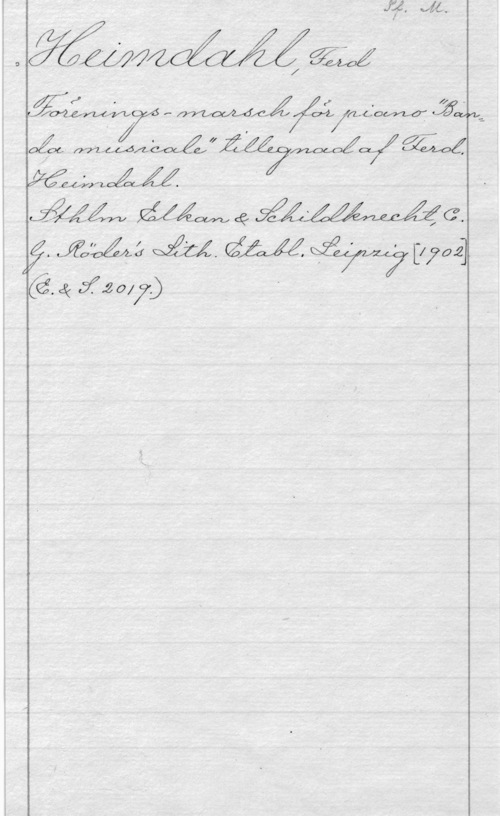 Pf. M.
Heimdahl, Ferd
Förenings-marsch för piano "Ban-
da musicale" tillegnad af Ferd.
Heimdahl.
Sthlm Elkan & Schildknecht, C.
G. Röder's Lith. Etabl. Leipzig [1902]
(E. & S. 2019.)